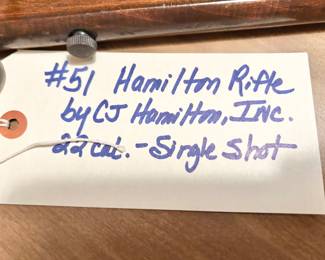 #51 Hamilton Rifle
by CJ Hamilton, INC.
22 cal. - Single Shot